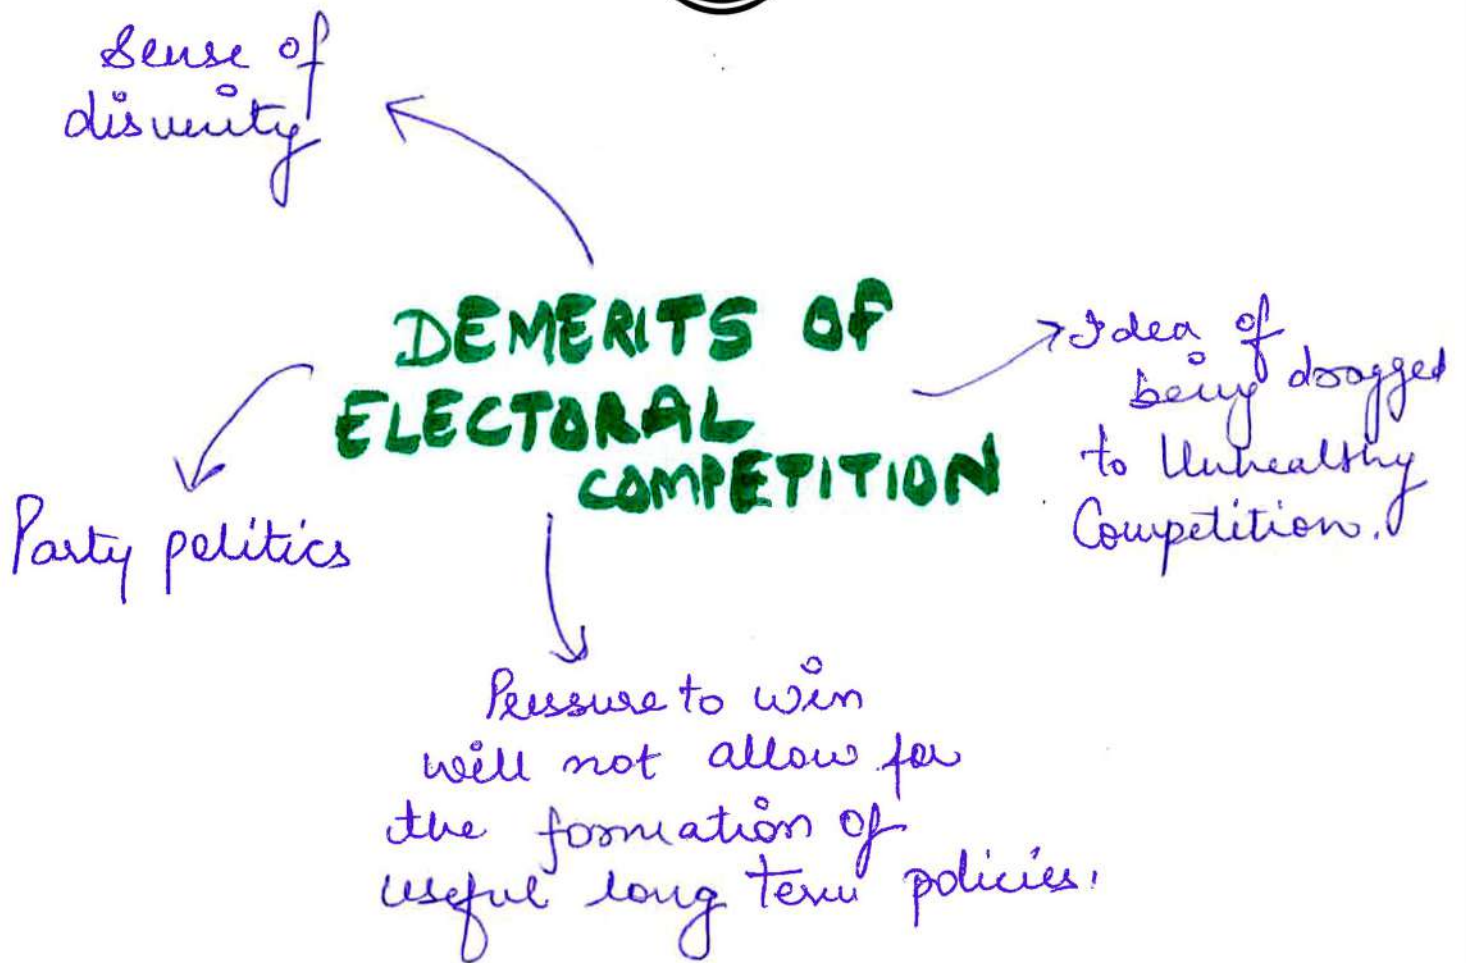 Sense of
disunity
DEMERITS OF
ELECTORAL
COMPETITION
Idea of
being dragged
to Unhealthy
Competition.
Party politics
Pressure to win
will not allow for
the formation of
useful long term policies.